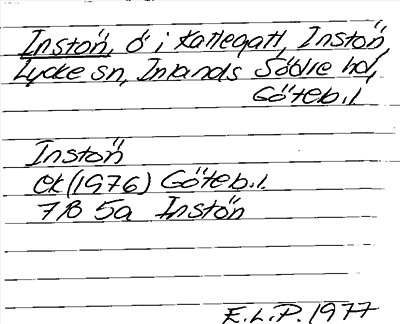 Instön, ö i Kattegatt, Instön,
Lycke sn, Inlands Södre hd,
Göteb.l
Instön
ek (1976) Göteb.l.
7B 5a Instön
E.L.P. 1977